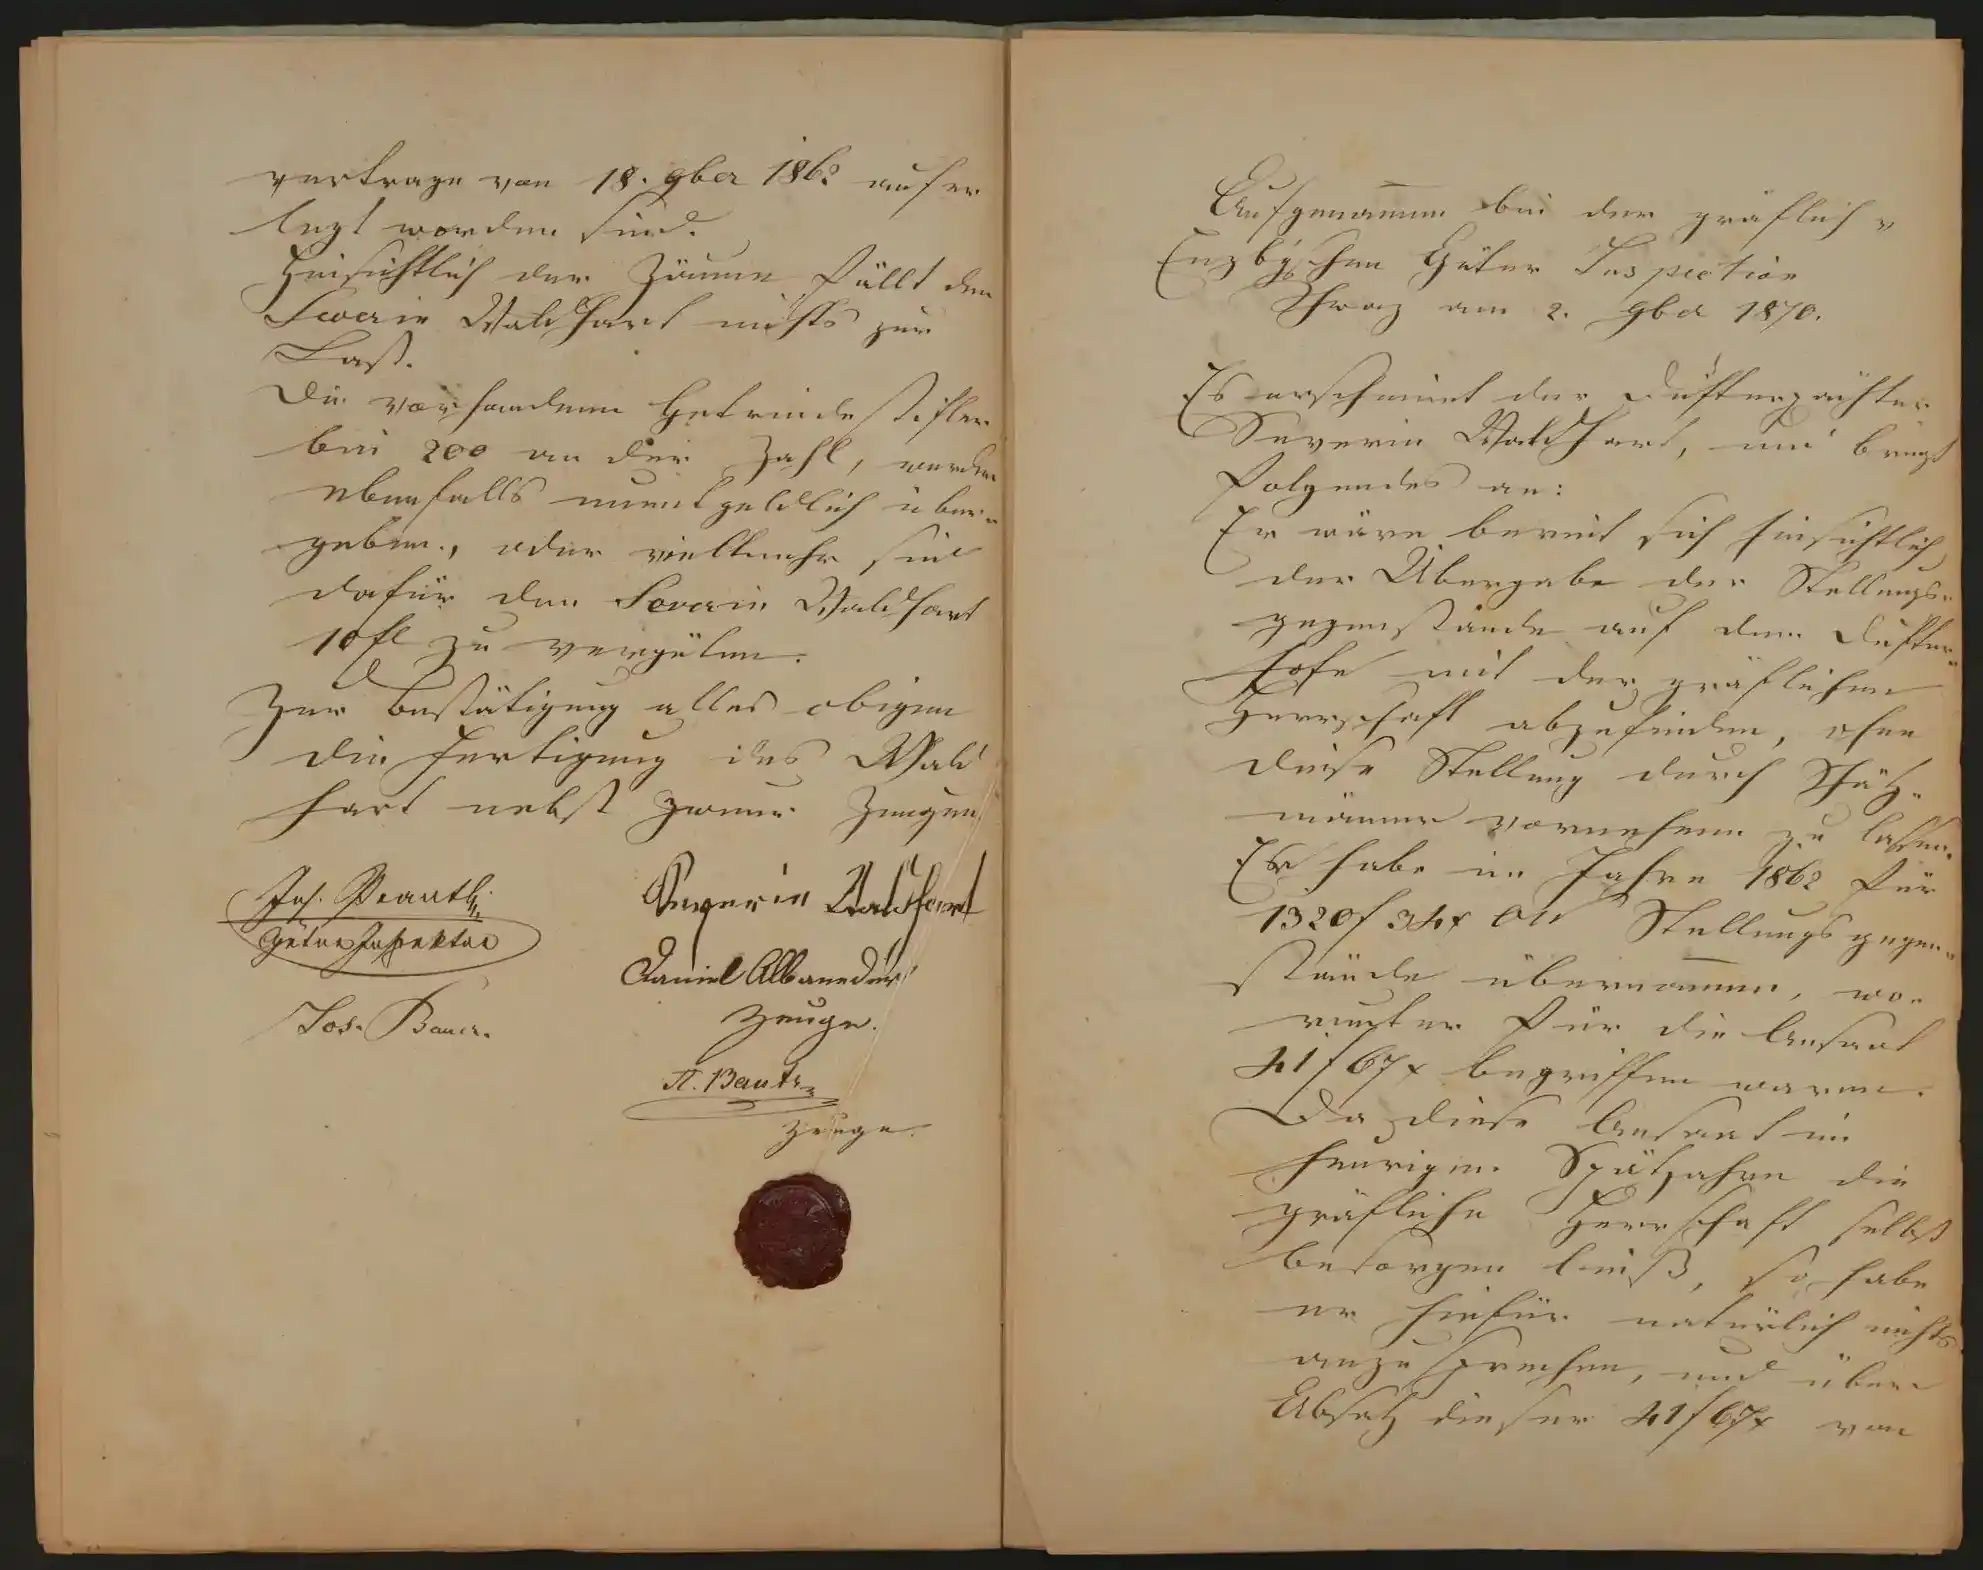 vertrage von 18. 9ber 1862 aufer
legt worden sind.
Hinsichtlich der Zäune fällt dem
Severin Waldhart nichts zur
Last.
Die vorhandenen Getreidestifler
bei 200 an der Zahl, werden
ebenfalls unentgeldlich über-
geben, oder vielmehr sind
dafür dem Severin Waldhart
10 fl zu vergüten.
Zur Bestätigung alles obigen
die Fertigung des Wald
hart nebst zweier Zeugen
Jos. Prantl
Güter Inspektor
Jos. Bauer.
Severin Waldhart
Daniel Albaneder
Zeuge.
Zeuge.
Aufgenommen bei der gräflich
Enzbg'schen Güter Inspection
Schwaz am 2. 9ber 1870.
Es erscheint der Dufterpächter
Severin Waldhart, und bringt
Folgendes an:
Er wäre bereit sich hinsichtlich
der Übergabe der Stellungs-
gegenstände auf dem Dufter-
hofe mit der gräflichen
Herrschaft abzufinden, ohne
diese Stellung durch Schätz-
männer vornehmen zu lassen.
Er habe im Jahre 1862 für
1320 f 34 x ÖW Stellungsgegen-
stände übernommen, wo-
runter für die Ansaat
41 f 67 x begriffen waren.
Da diese Ansaat im
heurigen Spätjahre die
gräfliche Herrschaft selbst
besorgen ließ, so habe
er hiefür natürlich nichts
anzusprechen, und über
Absatz dieser 41 f 67 x von